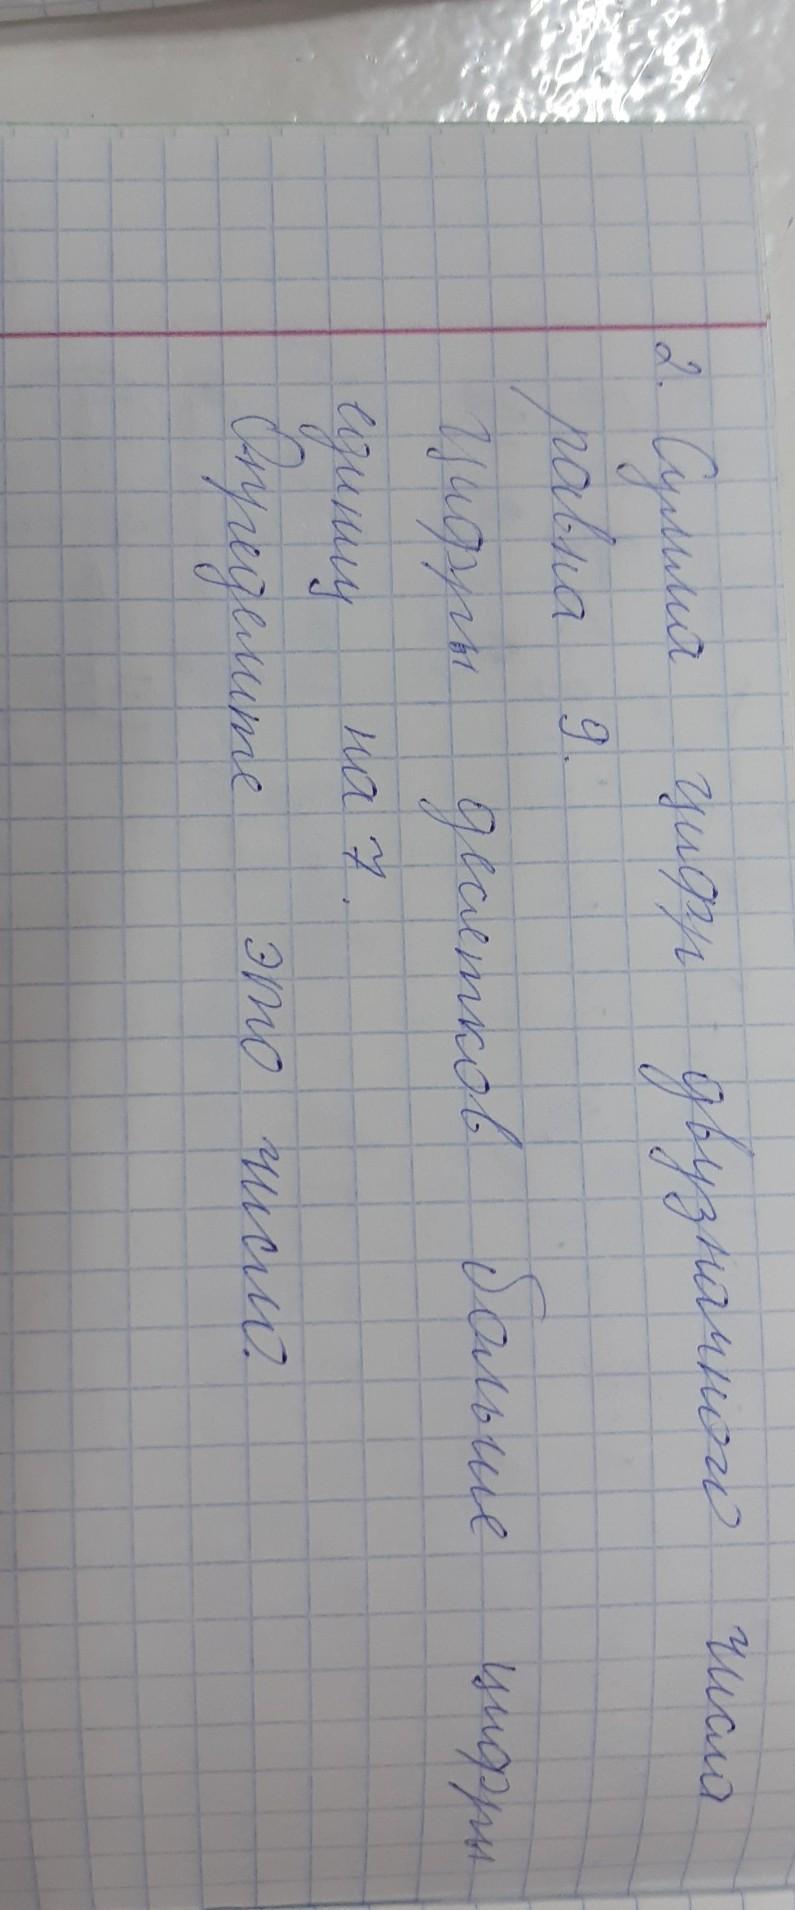 2. Сумма цифр двузначного числа
равна 9.
Цифры десятков больше цифры
единиц на 7.
Определите это число.